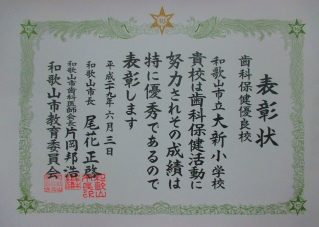 表彰状
歯科保健優良校
和歌山市立大新小学校
貴校は歯科保健活動に
努力されその成績は
特に優秀であるので
表彰します
平成二十九年六月三日
和歌山市長 尾花正啓
和歌山市歯科医師会長 片岡邦浩
和歌山市教育委員会